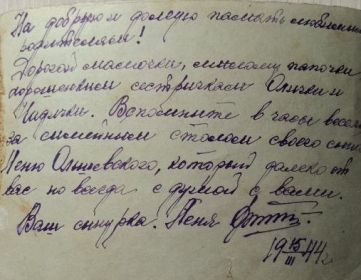 На добрую и долгую память любимым
родителям!
Дорогой мамочки, милому папочки
хорошеньким сестричкам Олички и
Вспомните в часы веселья
за семейным столом своего сына
Леню Ольшевского, который далеко от
вас но всегда с думой с вами.
Ваш сынурка. Леня
19 15/III 44 г.